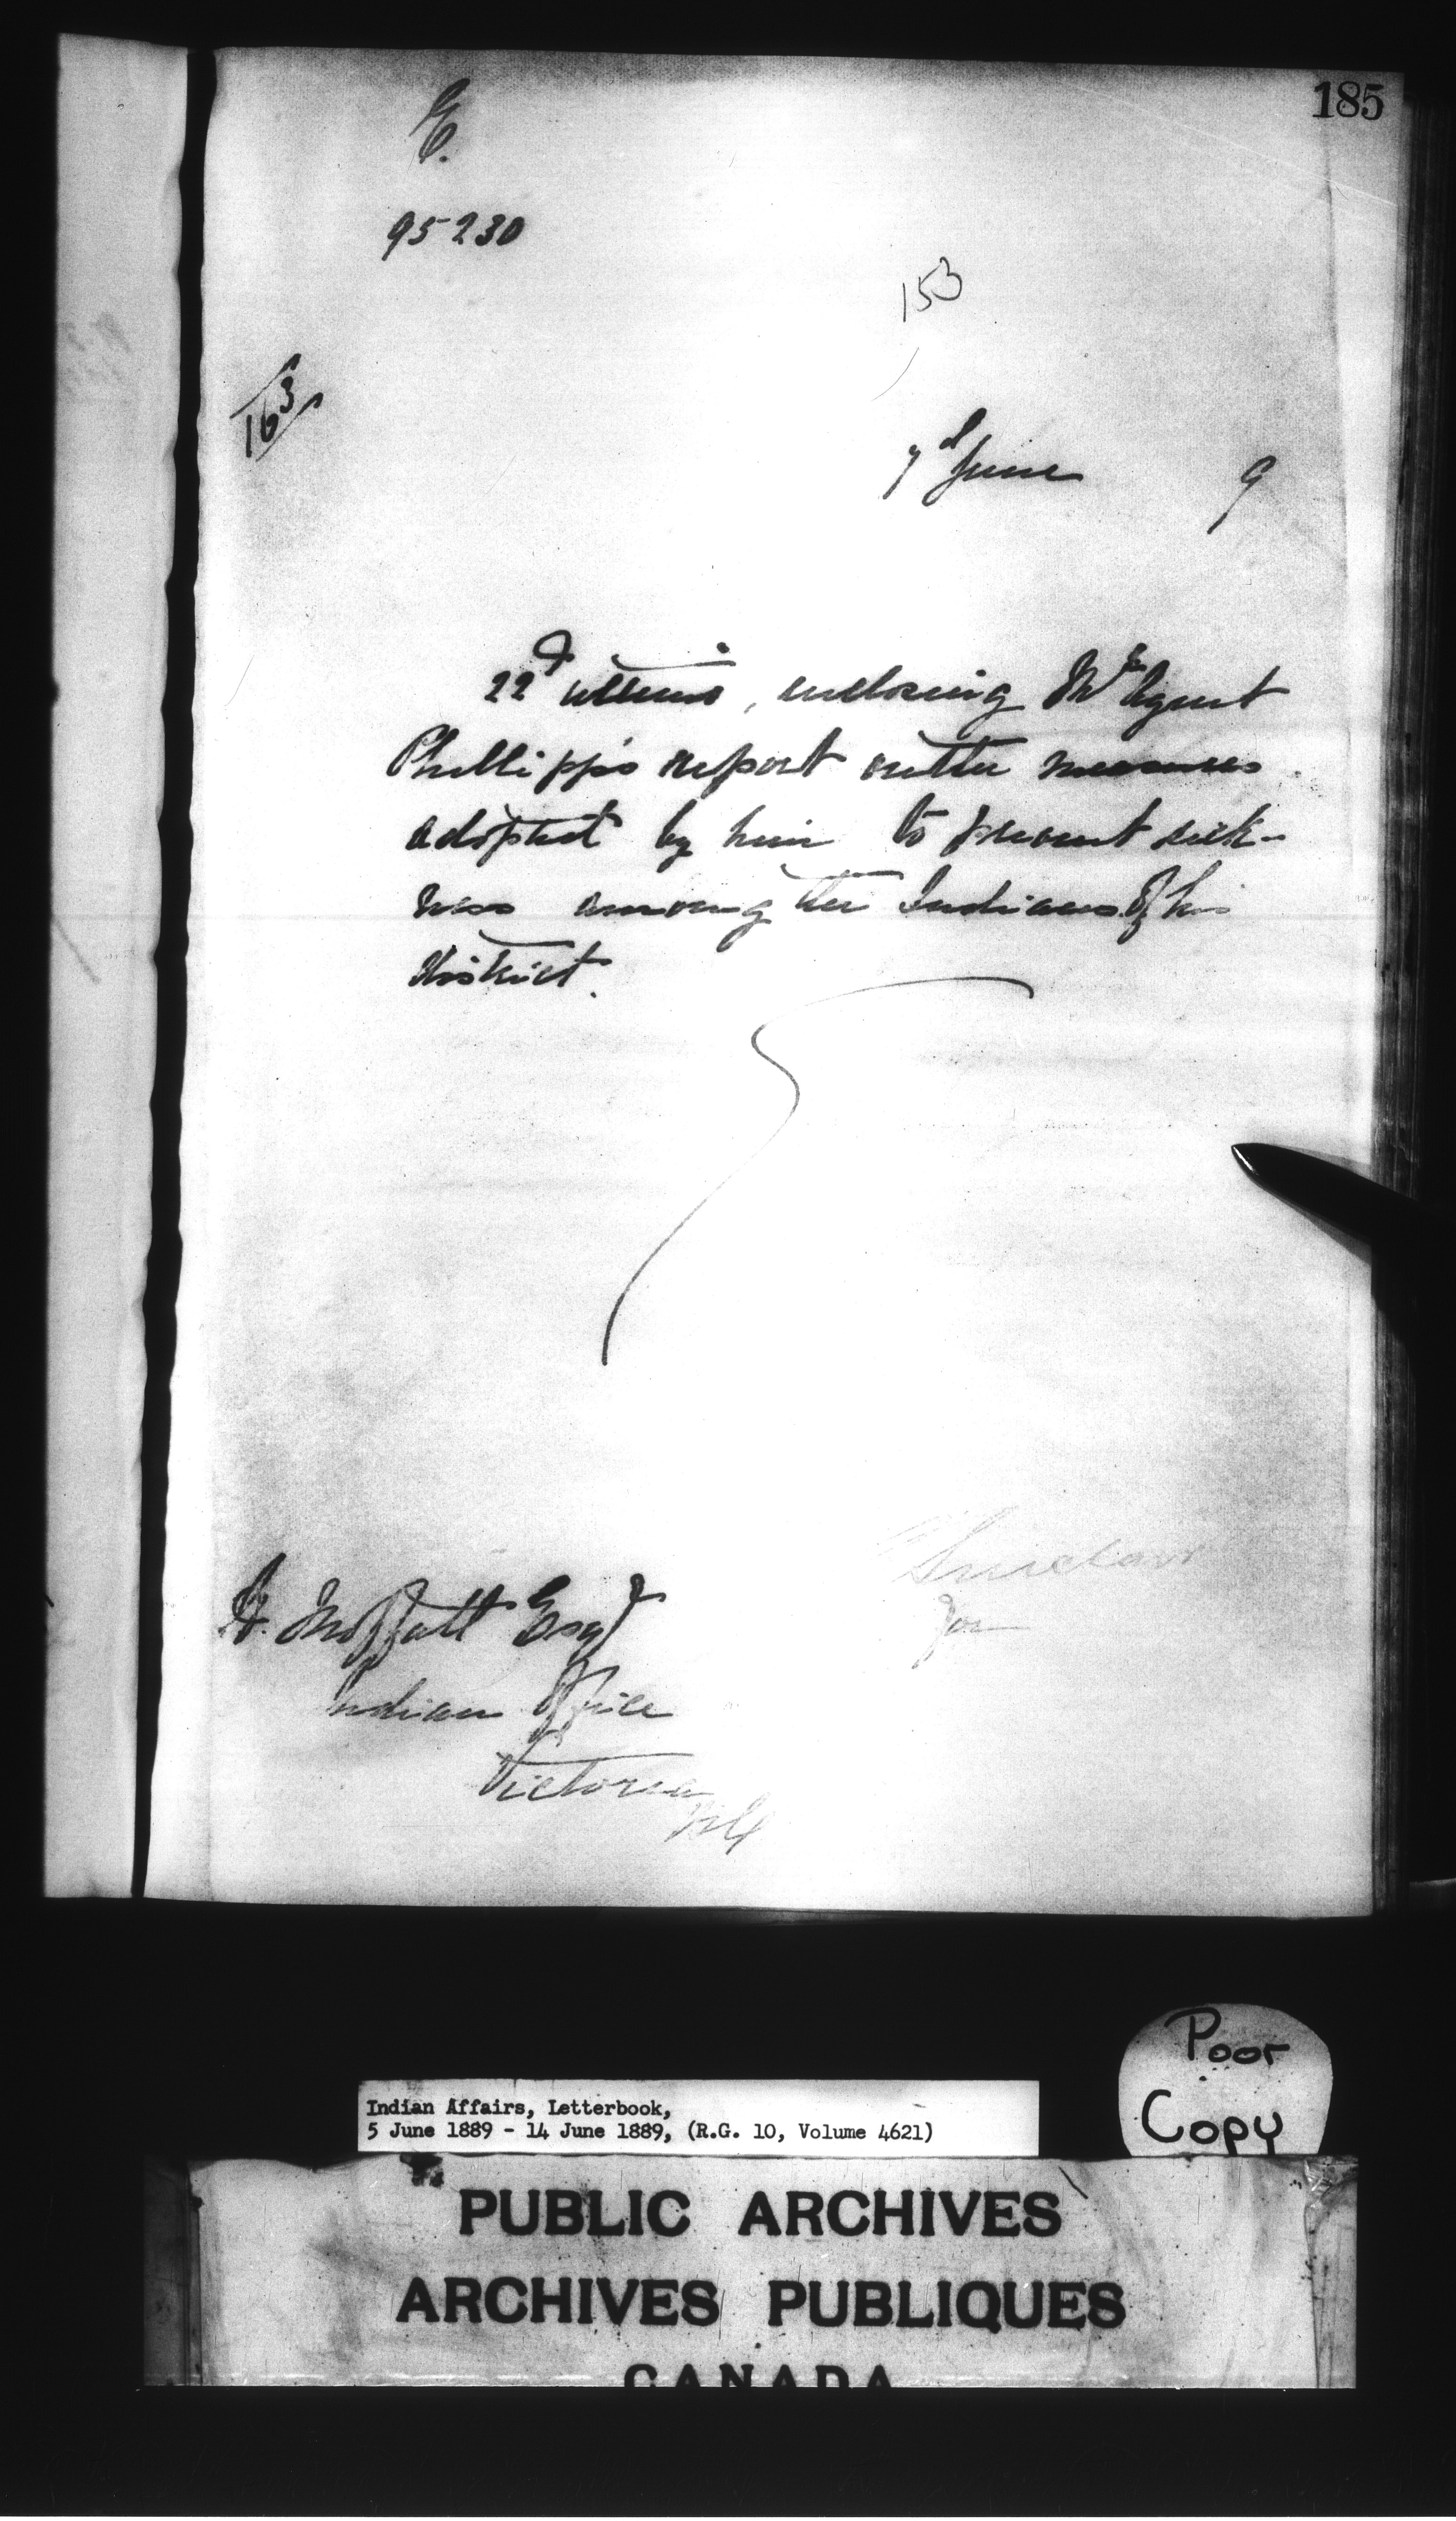 185
E.
95230
153
163
7th June 9
22d ultimo, enclosing Mr Agent
Phillipp's report on the measures
adopted by him to prevent sick-
ness among the Indians of his
district.
Sinclair
for
H. Moffatt Esqr
Indian Office
Victoria
Poor
Copy
Indian Affairs, Letterbook,
5 June 1889 - 14 June 1889, (R.G. 10, Volume 4621)
PUBLIC ARCHIVES
ARCHIVES PUBLIQUES
CANADA